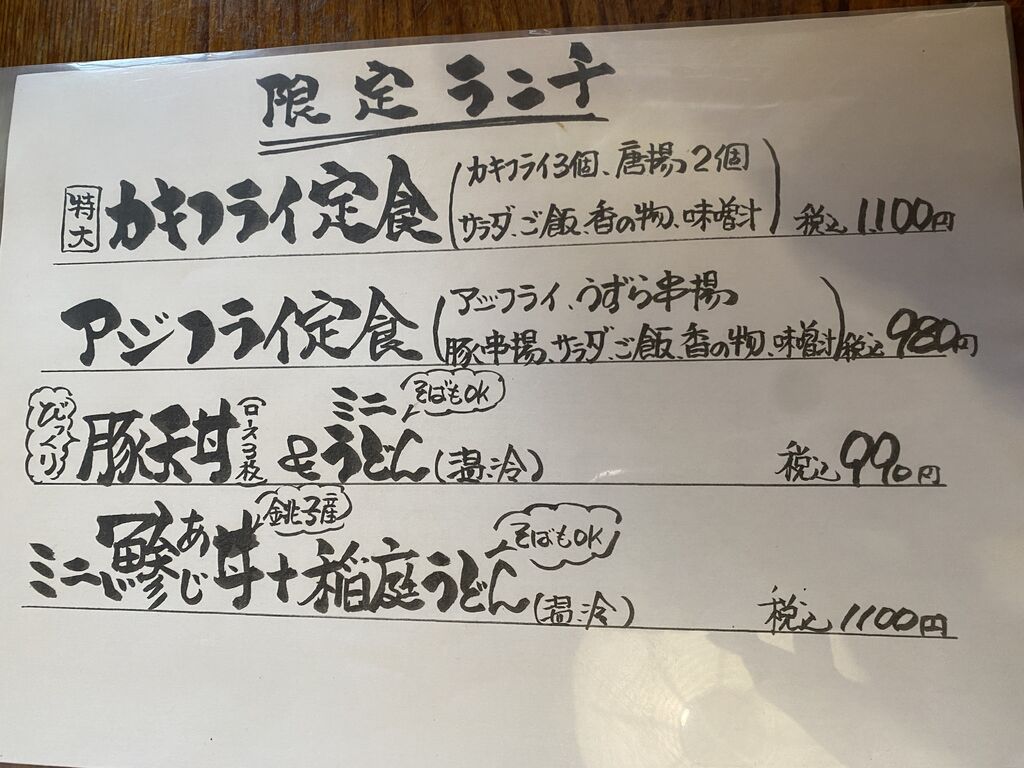 限定ランチ
特大 カキフライ定食 (カキフライ3個、唐揚2個
サラダ、ご飯、香の物、味噌汁) 税込1,100円
アジフライ定食 (アジフライ、うずら串揚
豚串揚、サラダ、ご飯、香の物、味噌汁) 税込980円
びっくり 豚天丼 (ロース3枚) & ミニうどん (温・冷) そばもOK 税込990円
ミニ鯵あじ丼 銚子産 + 稲庭うどん (温・冷) そばもOK 税込1100円